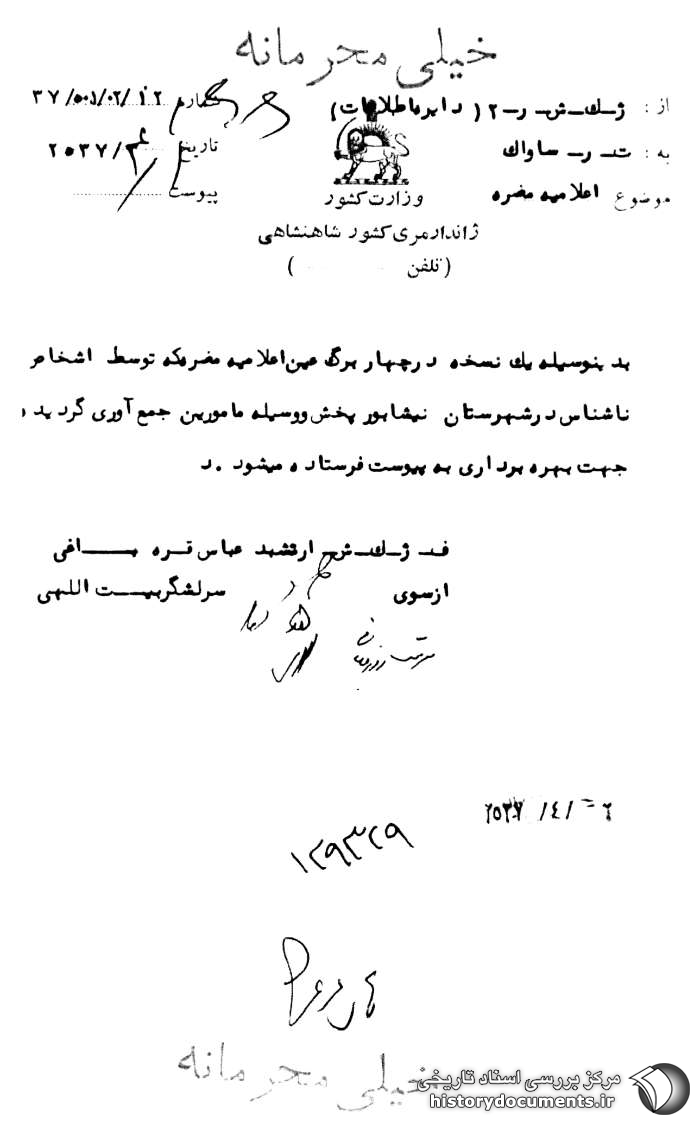 خیلی محرمانه
از : ژ-ک-ش- ر-۲ ( دایره اطلاعات )
به : ت- ر- ساواک
موضوع اعلامیه مضره
شماره ۳۷/۵۰۱/۰۲/۱۲
تاریخ ۲۵۳۷/
پیوست
وزارت کشور
ژاندارمری کشور شاهنشاهی
( تلفن )
بدینوسیله یک نسخه در چهار برگ عین اعلامیه مضره که توسط اشخاص
ناشناس در شهرستان نیشابور پخش و وسیله مامورین جمع آوری گردیده
جهت بهره برداری به پیوست فرستاده میشود . د
ف- ژ-ک-ش ارتشبد عباس قره باغی
از سوی سرلشگر بیت اللهی
۲۵۳۷ /٤/ -٦
۱۲۹۳۲۹
خیلی محرمانه
مرکز بررسی اسناد تاریخی
historydocuments.ir